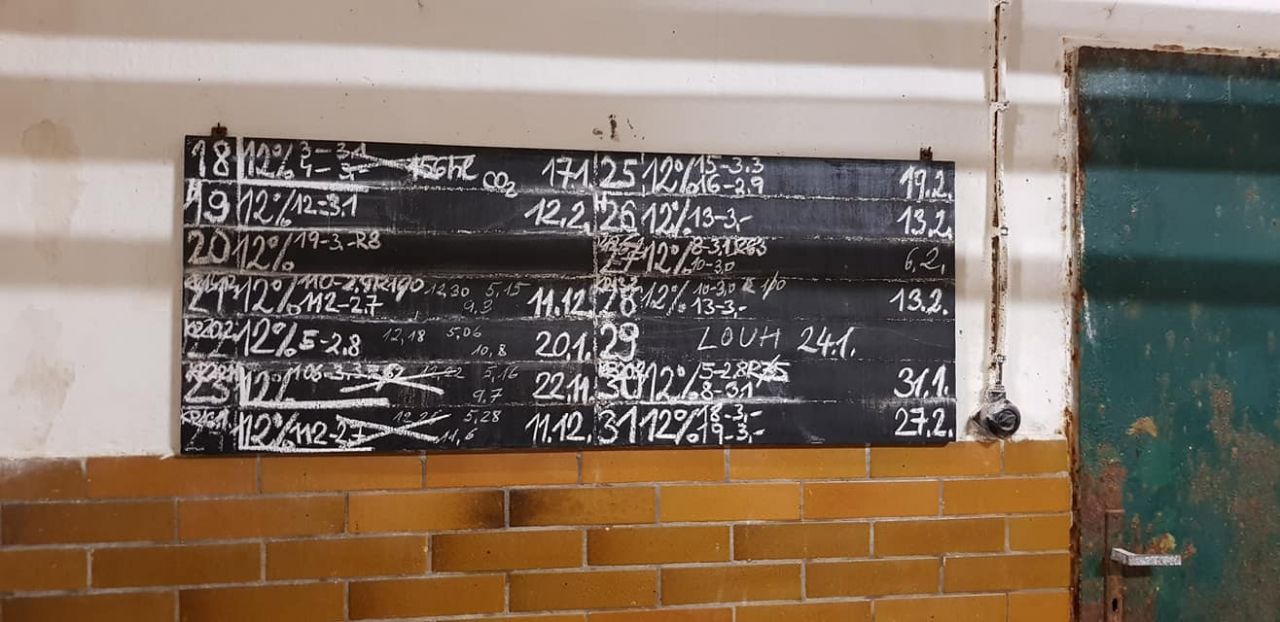 18 12% 3-3,1 4-3,- 156hl CO2 17.1
19 12% 12-3,1 12.2.
20 12% 19-3,-R8
21 12% 110-2,9 112-2,7 12,30 5,15 9,3 11.12.
12% 5-2,8 12,18 5,06 10,8 20.1.
23 12% 5,16 9,7 22.11.
12% 112-2,7 5,28 11,6 11.12.
25 12% 15-3,3 16-2,9 19.2.
26 12% 13-3,- 13.2.
27 12% 10-3,0 6.2.
28 12% 10-3,0 13-3,- 13.2.
29 LOUH 24.1.
30 12% 5-2,8 8-3,1 31.1.
31 12% 18-3,- 19-3,- 27.2.